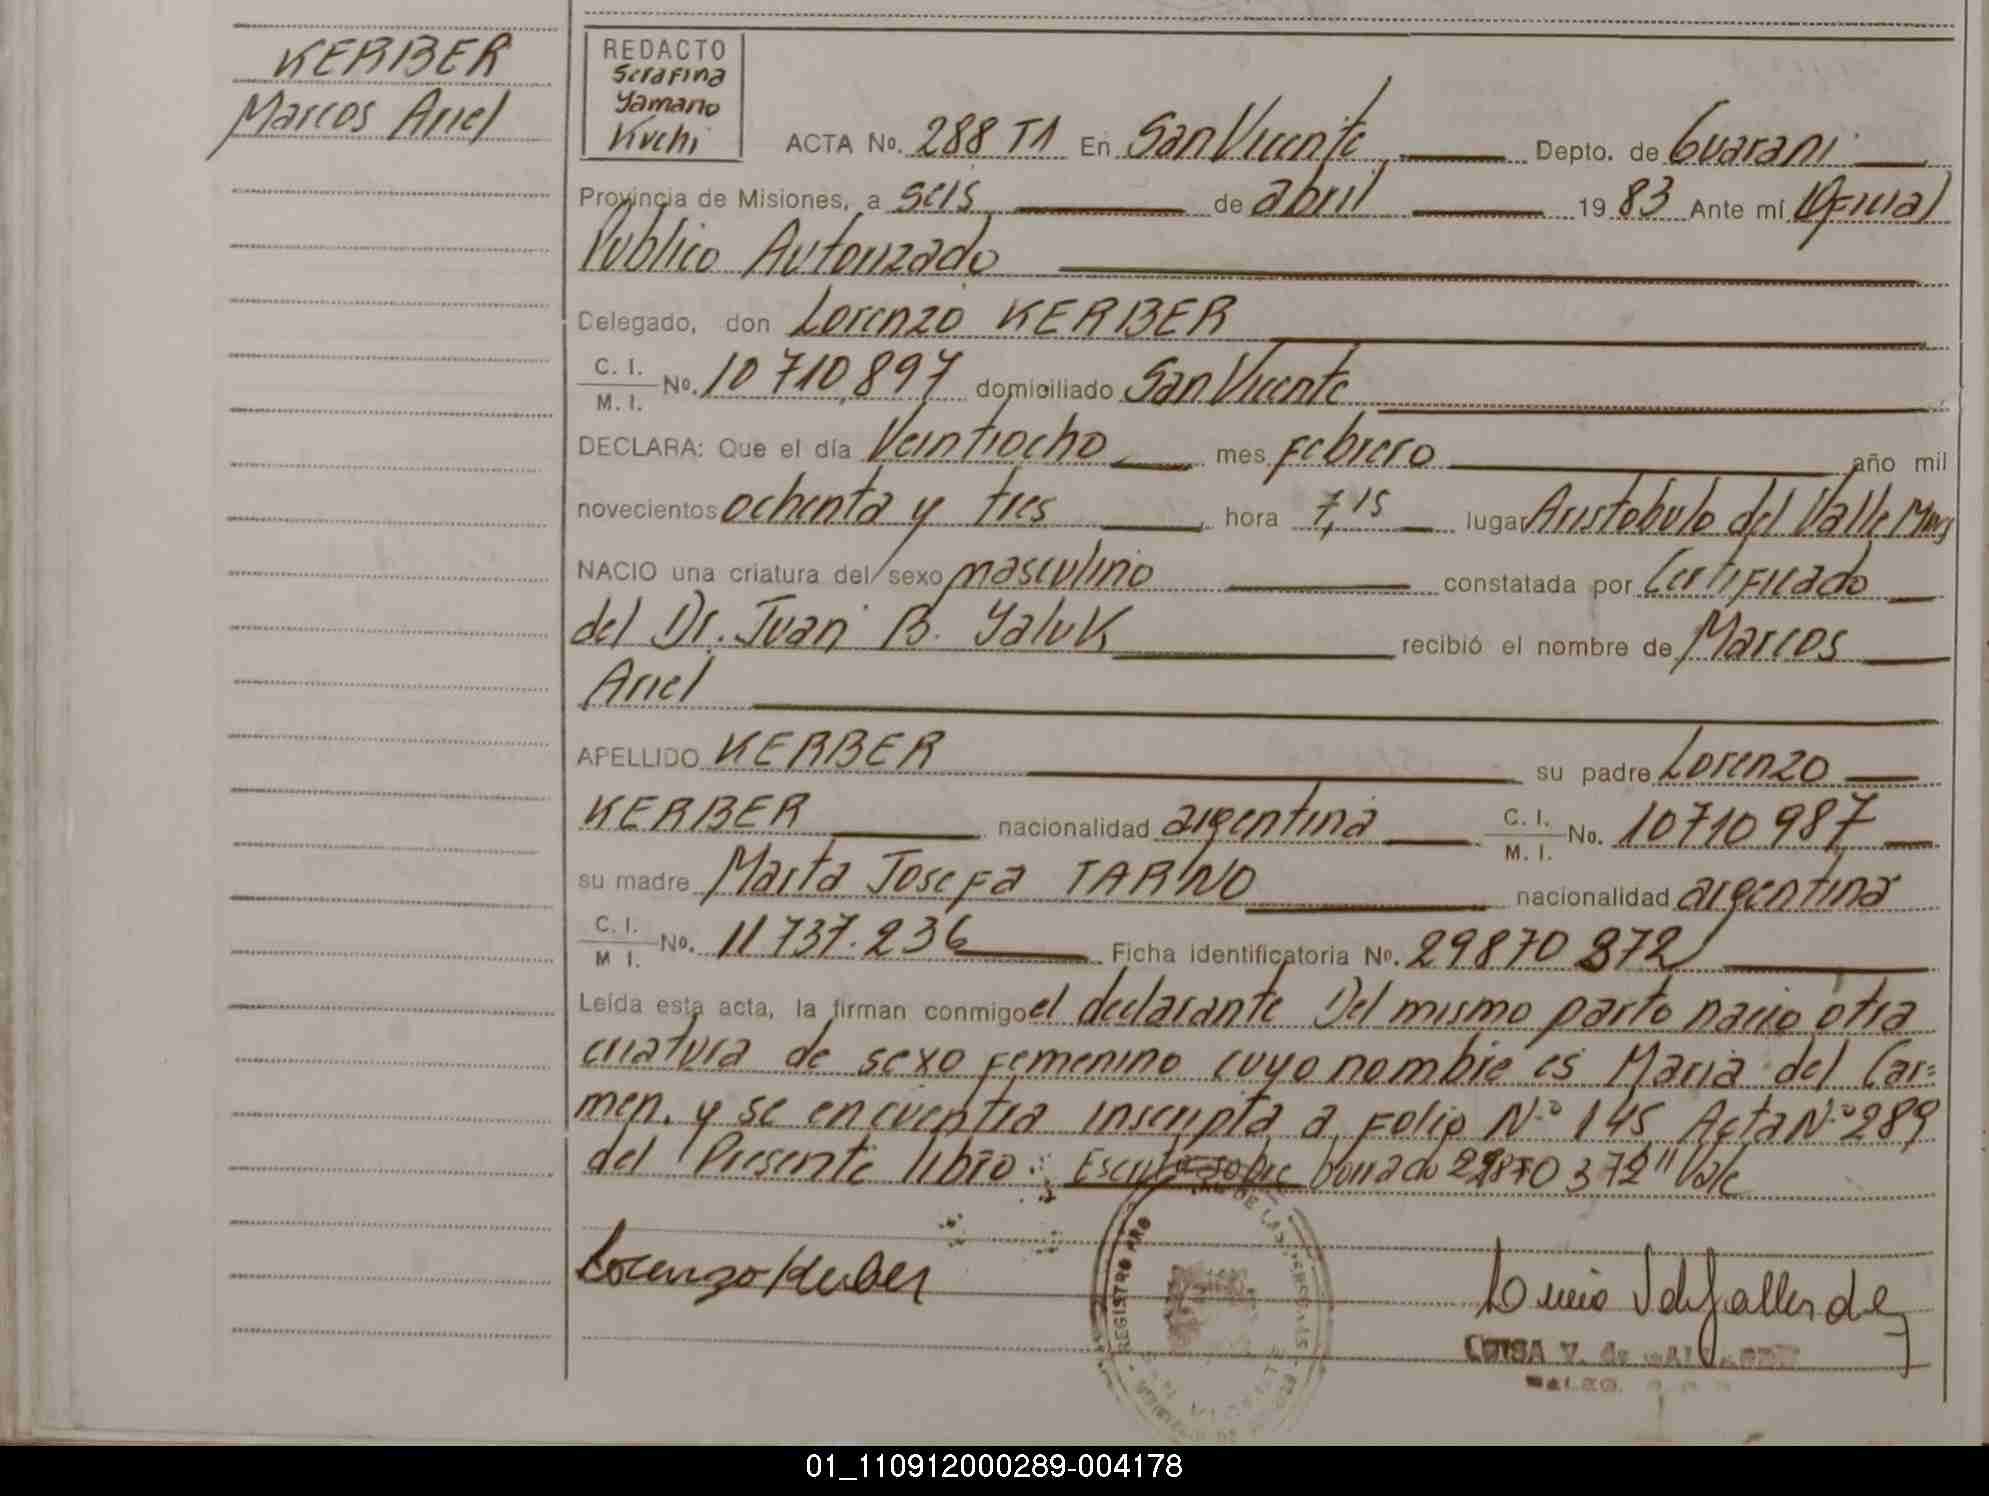 KERBER
Marcos Ariel
REDACTO
Serafina
Yamano
Kuchi
ACTA No. 288 T1 En San Vicente Depto. de Guarani
Provincia de Misiones, a seis de abril 1983 Ante mí Oficial
Publico Autorizado
Delegado, don Lorenzo KERBER
C. I.
M. I. No. 10710,897 domiciliado San Vicente
DECLARA: Que el día Veintiocho mes Febrero año mil
novecientos ochenta y tres hora 7,15 lugar Aristobulo del Valle Mnes
NACIO una criatura del sexo masculino constatada por Certificado
del Dr. Juan B. Yaluk recibió el nombre de Marcos
Ariel
APELLIDO KERBER su padre Lorenzo
KERBER nacionalidad argentina C. I.
M. I. No. 10710987
su madre Marta Josefa TARNO nacionalidad argentina
C. I.
M I. No. 11737.236 Ficha identificatoria No. 29870372
Leída esta acta, la firman conmigo el declarante Del mismo parto nacio otra
criatura de sexo femenino cuyo nombre es Maria del Car=
men. y se encuentra inscripta a Folio N.º 145 Acta N.º 289
del Presente libro. Escrito sobre borrado 29870372" Vale
Lorenzo Kerber
REGISTRO
DE LAS PERSONAS
LUISA V. de
01_110912000289-004178